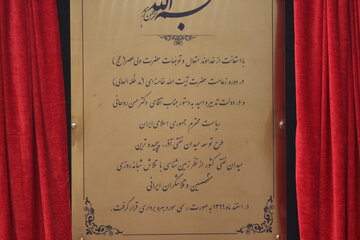 بسم الله الرحمن الرحیم
با استعانت از خداوند متعال و توجهات حضرت ولی عصر (عج)
در دوره زعامت حضرت آیت الله خامنه ای (مد ظله العالی)
و در دولت تدبیر و امید به دستور جناب آقای دکتر حسن روحانی
ریاست محترم جمهوری اسلامی ایران
طرح توسعه میدان نفتی آذر، پیچیده ترین
میدان نفتی کشور از نظر زمین شناسی با تلاش شبانه روزی
متخصصین و تلاشگران ایرانی
در اسفند ماه ۱۳۹۹ به صورت رسمی مورد بهره برداری قرار گرفت.